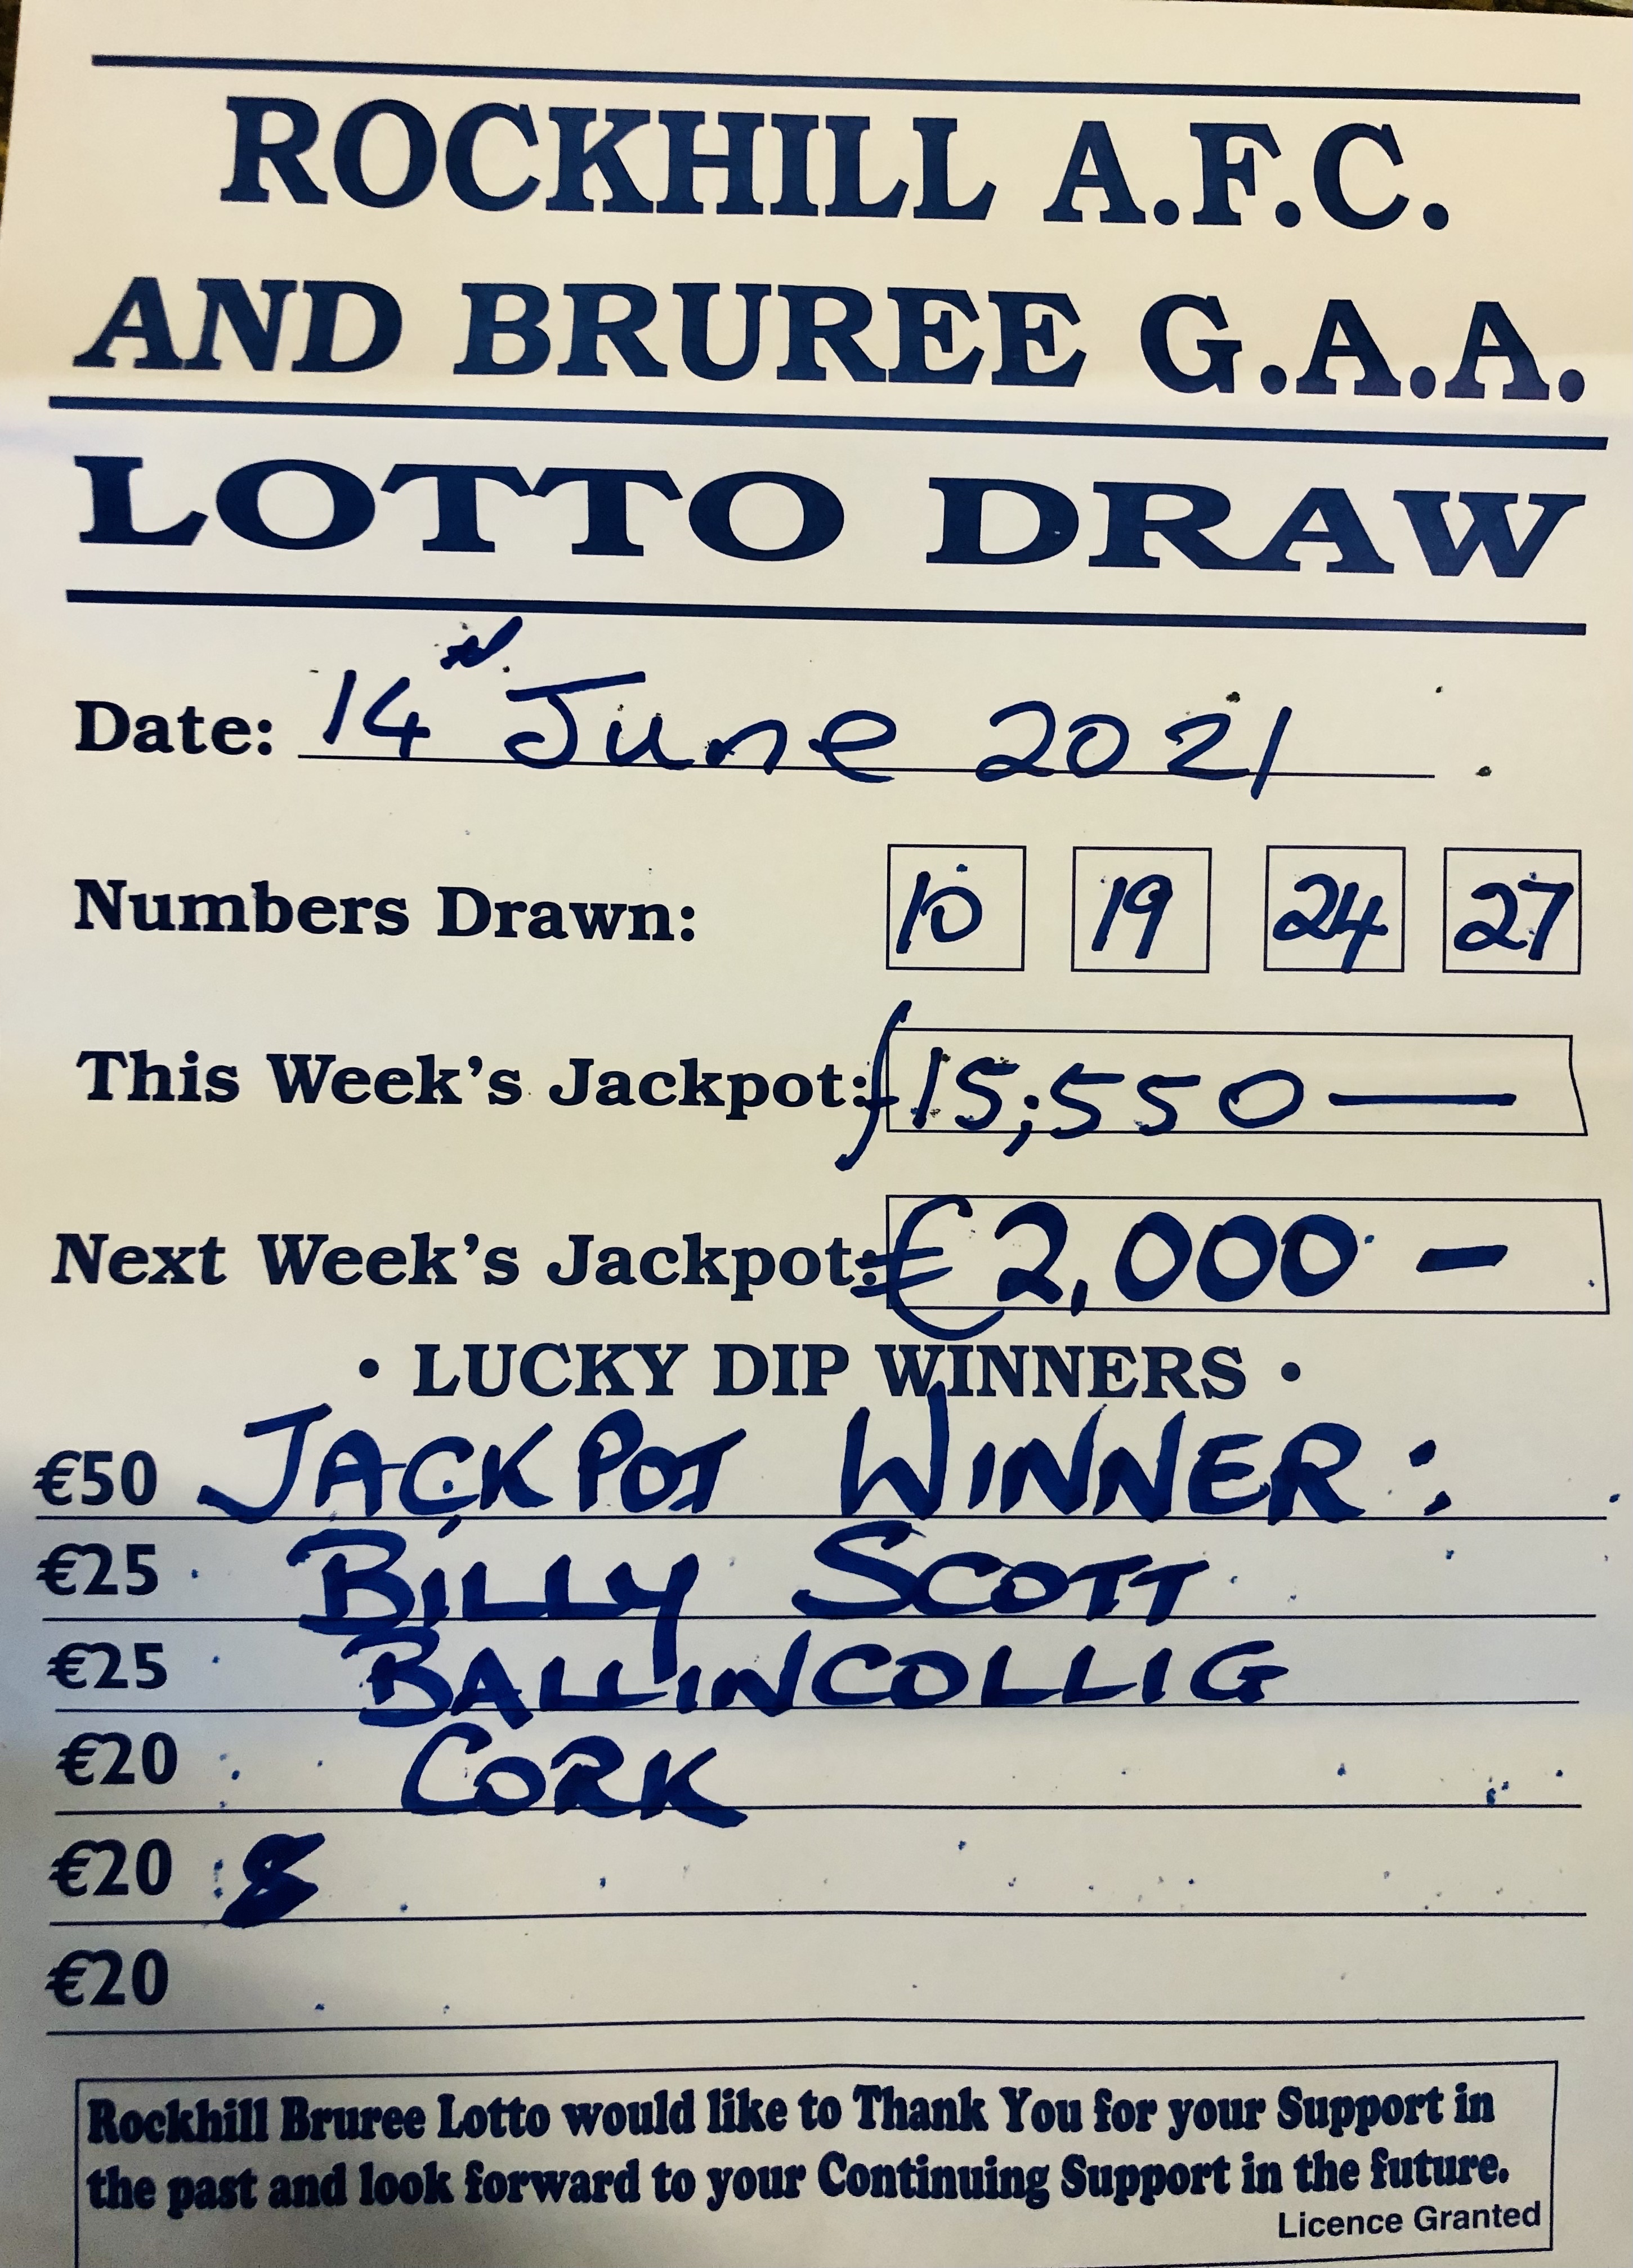 ROCKHILL A.F.C.
AND BRUREE G.A.A.
LOTTO DRAW
Date: 14th June 2021
Numbers Drawn: 10 19 24 27
This Week's Jackpot: £15,550 —
Next Week's Jackpot: €2,000 -
• LUCKY DIP WINNERS •
€50 JACKPOT WINNER:
€25 BILLY SCOTT
€25 BALLINCOLLIG
€20 CORK
€20
€20
Rockhill Bruree Lotto would like to Thank You for your Support in
the past and look forward to your Continuing Support in the future.
Licence Granted